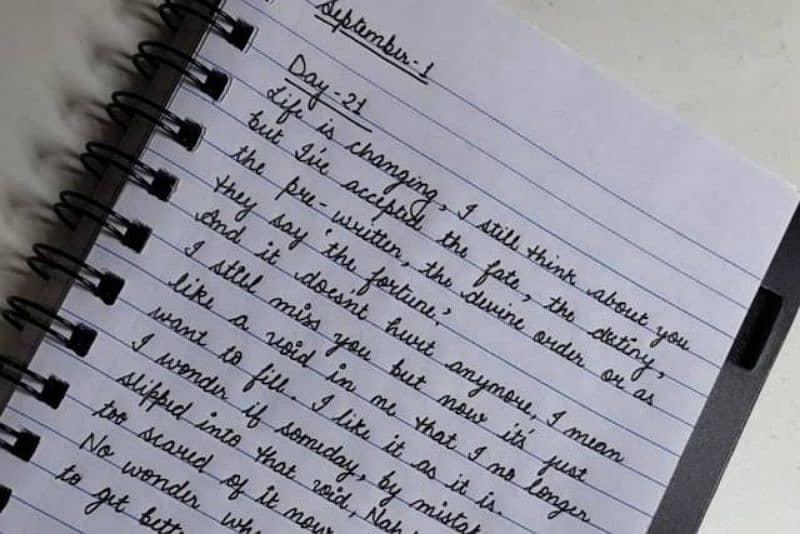 September-1
Day-21
Life is changing, I still think about you
but I've accepted the fate, the destiny,
the pre-written, the devine order or as
they say 'the fortune.'
And it doesnt hurt anymore, I mean
I still miss you but now it's just
like a void in me that I no longer
want to fill. I like it as it is.
I wonder if someday, by mistak
slipped into that void, Nah
too scared of it now
No wonder wh
to get bett